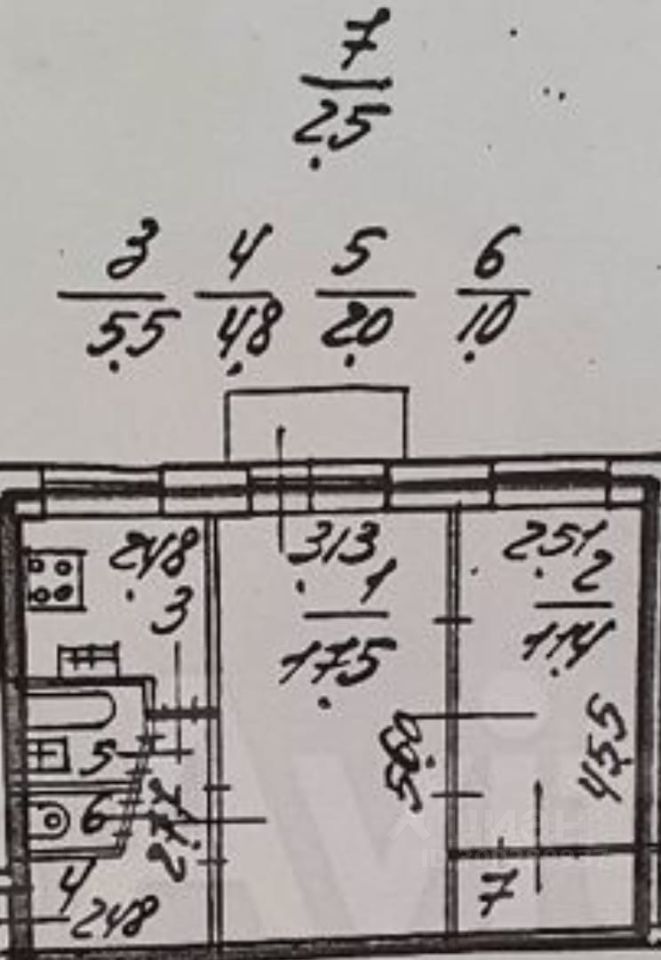 7
2.5
3 4 5 6
5.5 4.8 2.0 1.0
2.48 3.13 2.51
3 1 2
17.5 11.4
5.59 4.55
5
6 2.77
4 7
2.48